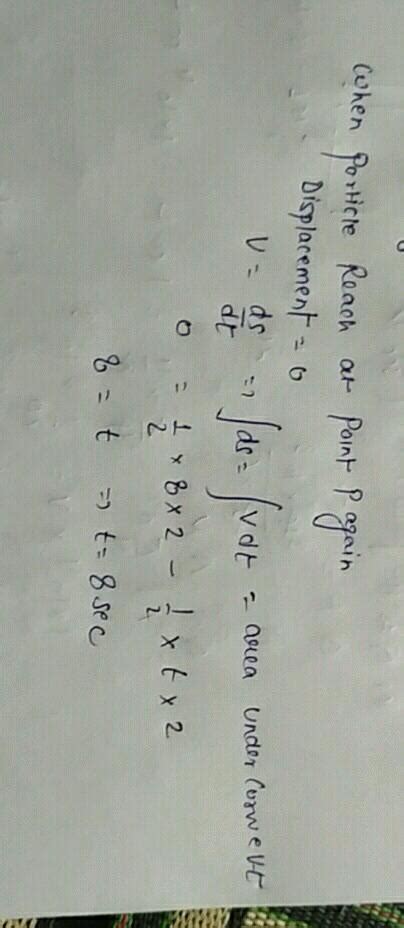 When Particle Reach at Point P again
Displacement = 0
V = ds/dt => ∫ds = ∫vdt = area under curve vt
0 = 1/2 × 8 × 2 - 1/2 × t × 2
8 = t => t = 8 sec